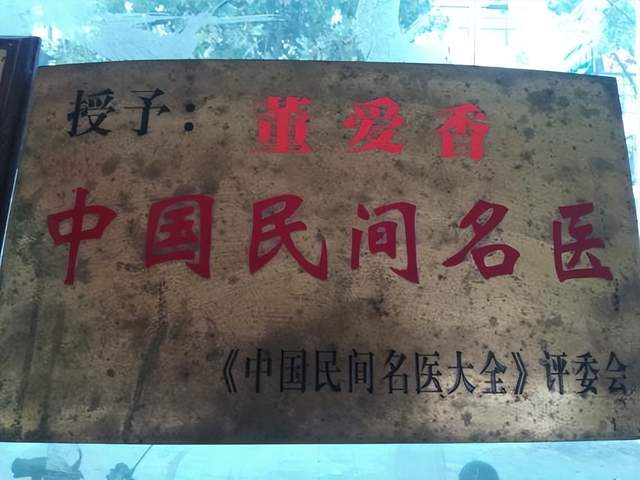 授予：董爱香
中国民间名医
《中国民间名医大全》评委会